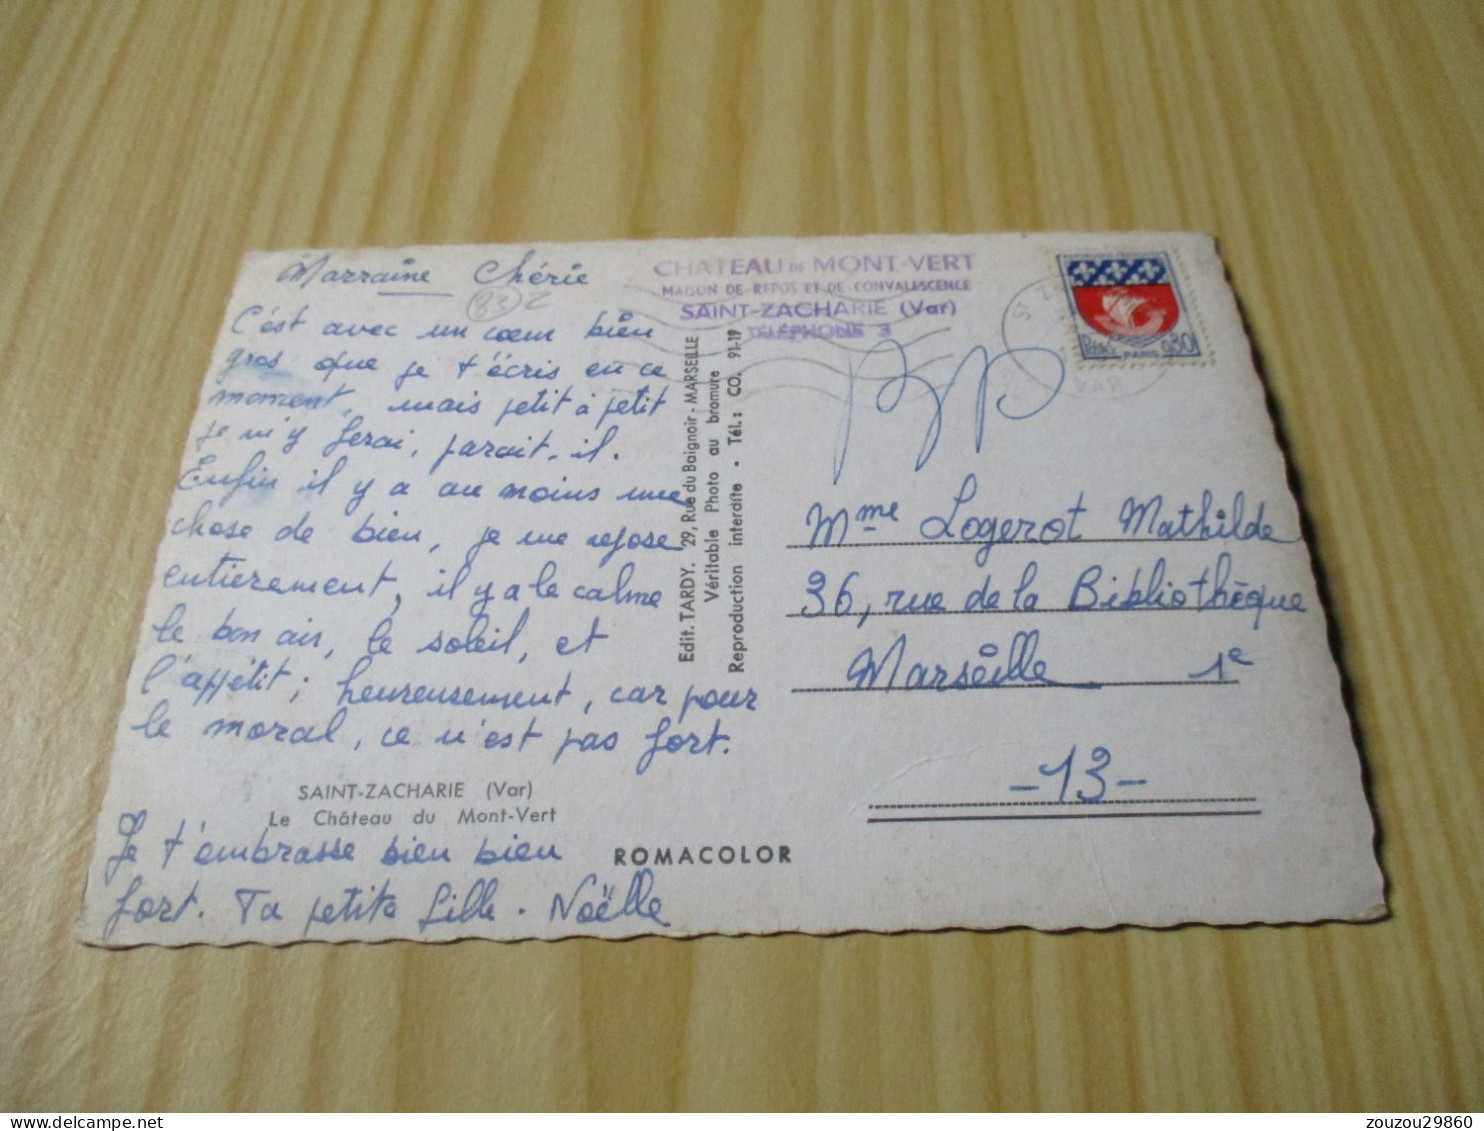 Marraine Chérie
(83) 2
C'est avec un cœur bien
gros que je t'écris en ce
moment, mais petit à petit
je m'y ferai, parait-il.
Enfin il y a au moins une
chose de bien, je me repose
entierement, il y a le calme
le bon air, le soleil, et
l'appétit; heureusement, car pour
le moral, ce n'est pas fort.
SAINT-ZACHARIE (Var)
Le Château du Mont-Vert
Je t'embrasse bien bien
fort. Ta petite fille. Noëlle
ROMACOLOR
Edit. TARDY. 29, Rue du Baignoir - MARSEILLE
Véritable Photo au bromure
Reproduction interdite - Tél. : CO. 91-19
CHATEAU DE MONT-VERT
MAISON DE REPOS ET DE CONVALESCENCE
SAINT-ZACHARIE (Var)
TÉLÉPHONE 3
ST Z
VAR
0,30
PARIS
Mme Logerot Mathilde
36, rue de la Bibliothèque
Marseille 1e
-13-
zouzou29860